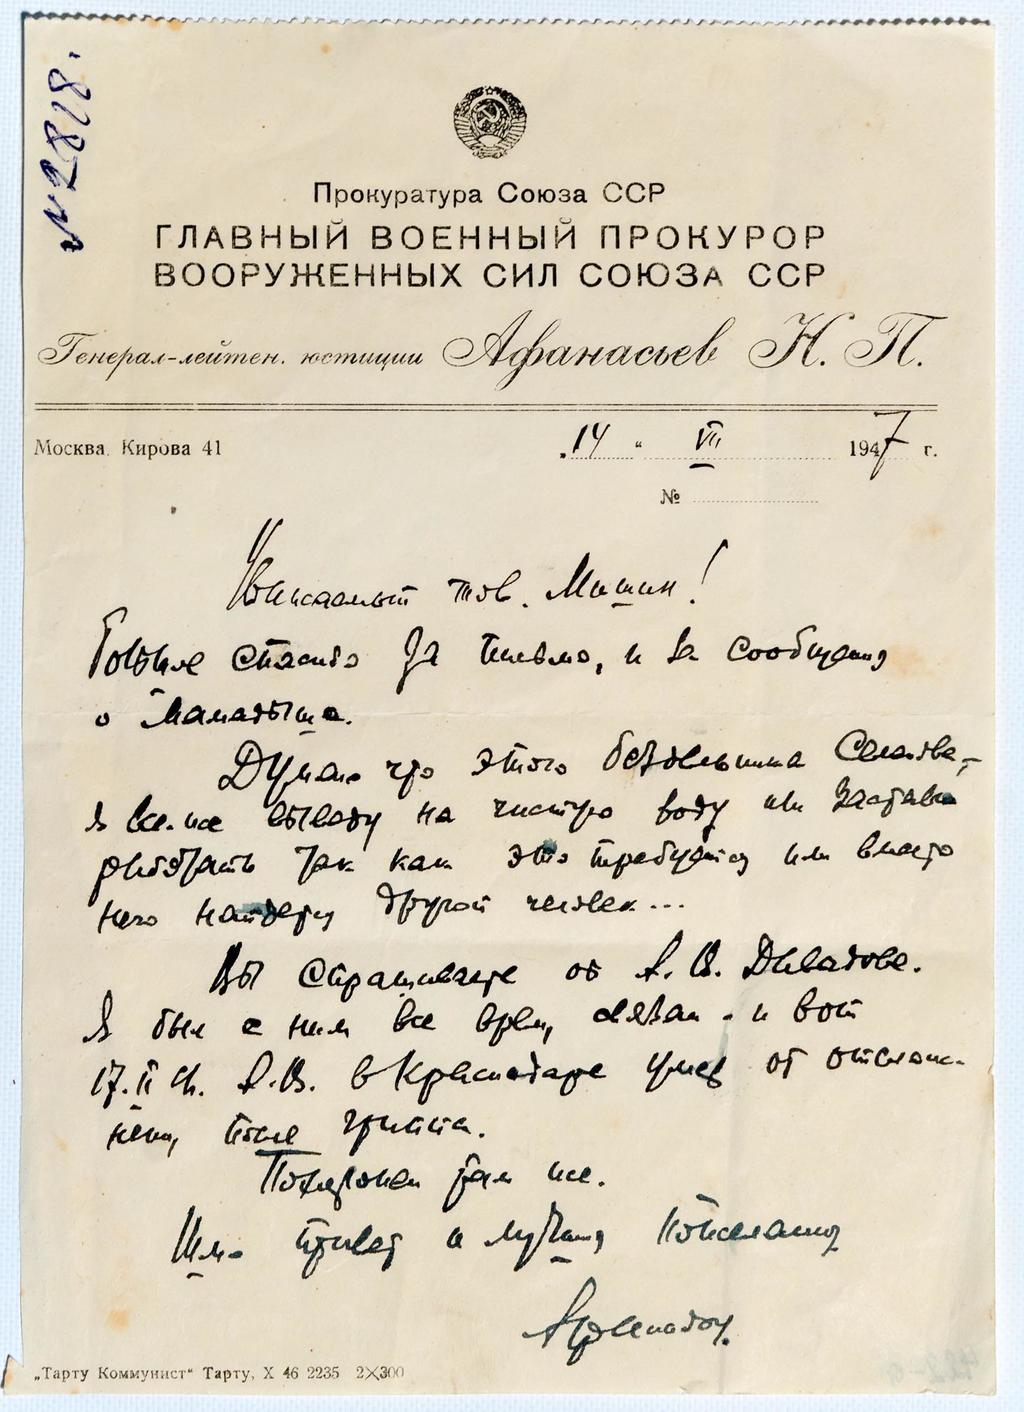 № 2818.
Прокуратура Союза ССР
ГЛАВНЫЙ ВОЕННЫЙ ПРОКУРОР
ВООРУЖЕННЫХ СИЛ СОЮЗА ССР
Генерал-лейтен. юстиции Афанасьев Н. П.
Москва, Кирова 41 „14 “ VII 1947 г.
№
Уважаемый тов. Мишин!
Большое спасибо за письмо, и за сообщения
о
Думаю что этого бездельника
я все-же выведу на чистую воду или заставлю
работать так как это требуется или вместо
него найдется другой человек...
Вы спрашиваете об А. В.
Я был с ним все время связан - и вот
17.II А. В. в Краснодаре умер от осложне-
ния, после гриппа.
Похоронен там же.
Шлю привет и лучшие пожелания
„Тарту Коммунист“ Тарту, X 46 2235 2×300